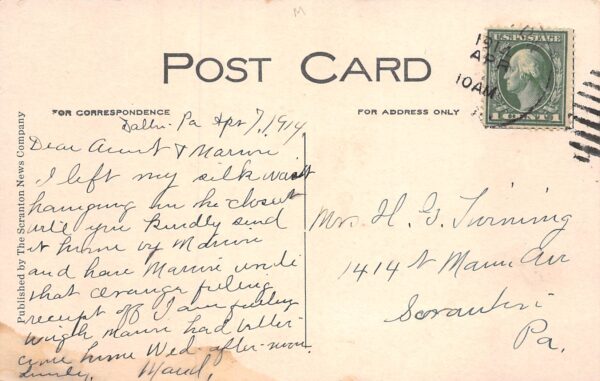 POST CARD
FOR CORRESPONDENCE
FOR ADDRESS ONLY
Published by The Scranton News Company
U.S. POSTAGE
1 CENT 1
1914
APR
10 AM
Pa Apr 7, 1914
Dear Aunt & Marvin
I left my silk waist
hanging in the closet
will you kindly send
it home by Marvin
and have Marvin
that orange filling
receipt off I am feeling
Marvin had better
come home Wed. after-noon.
Maud,
Mrs. H. G. Twining
1414 N Main Ave
Scranton
Pa.